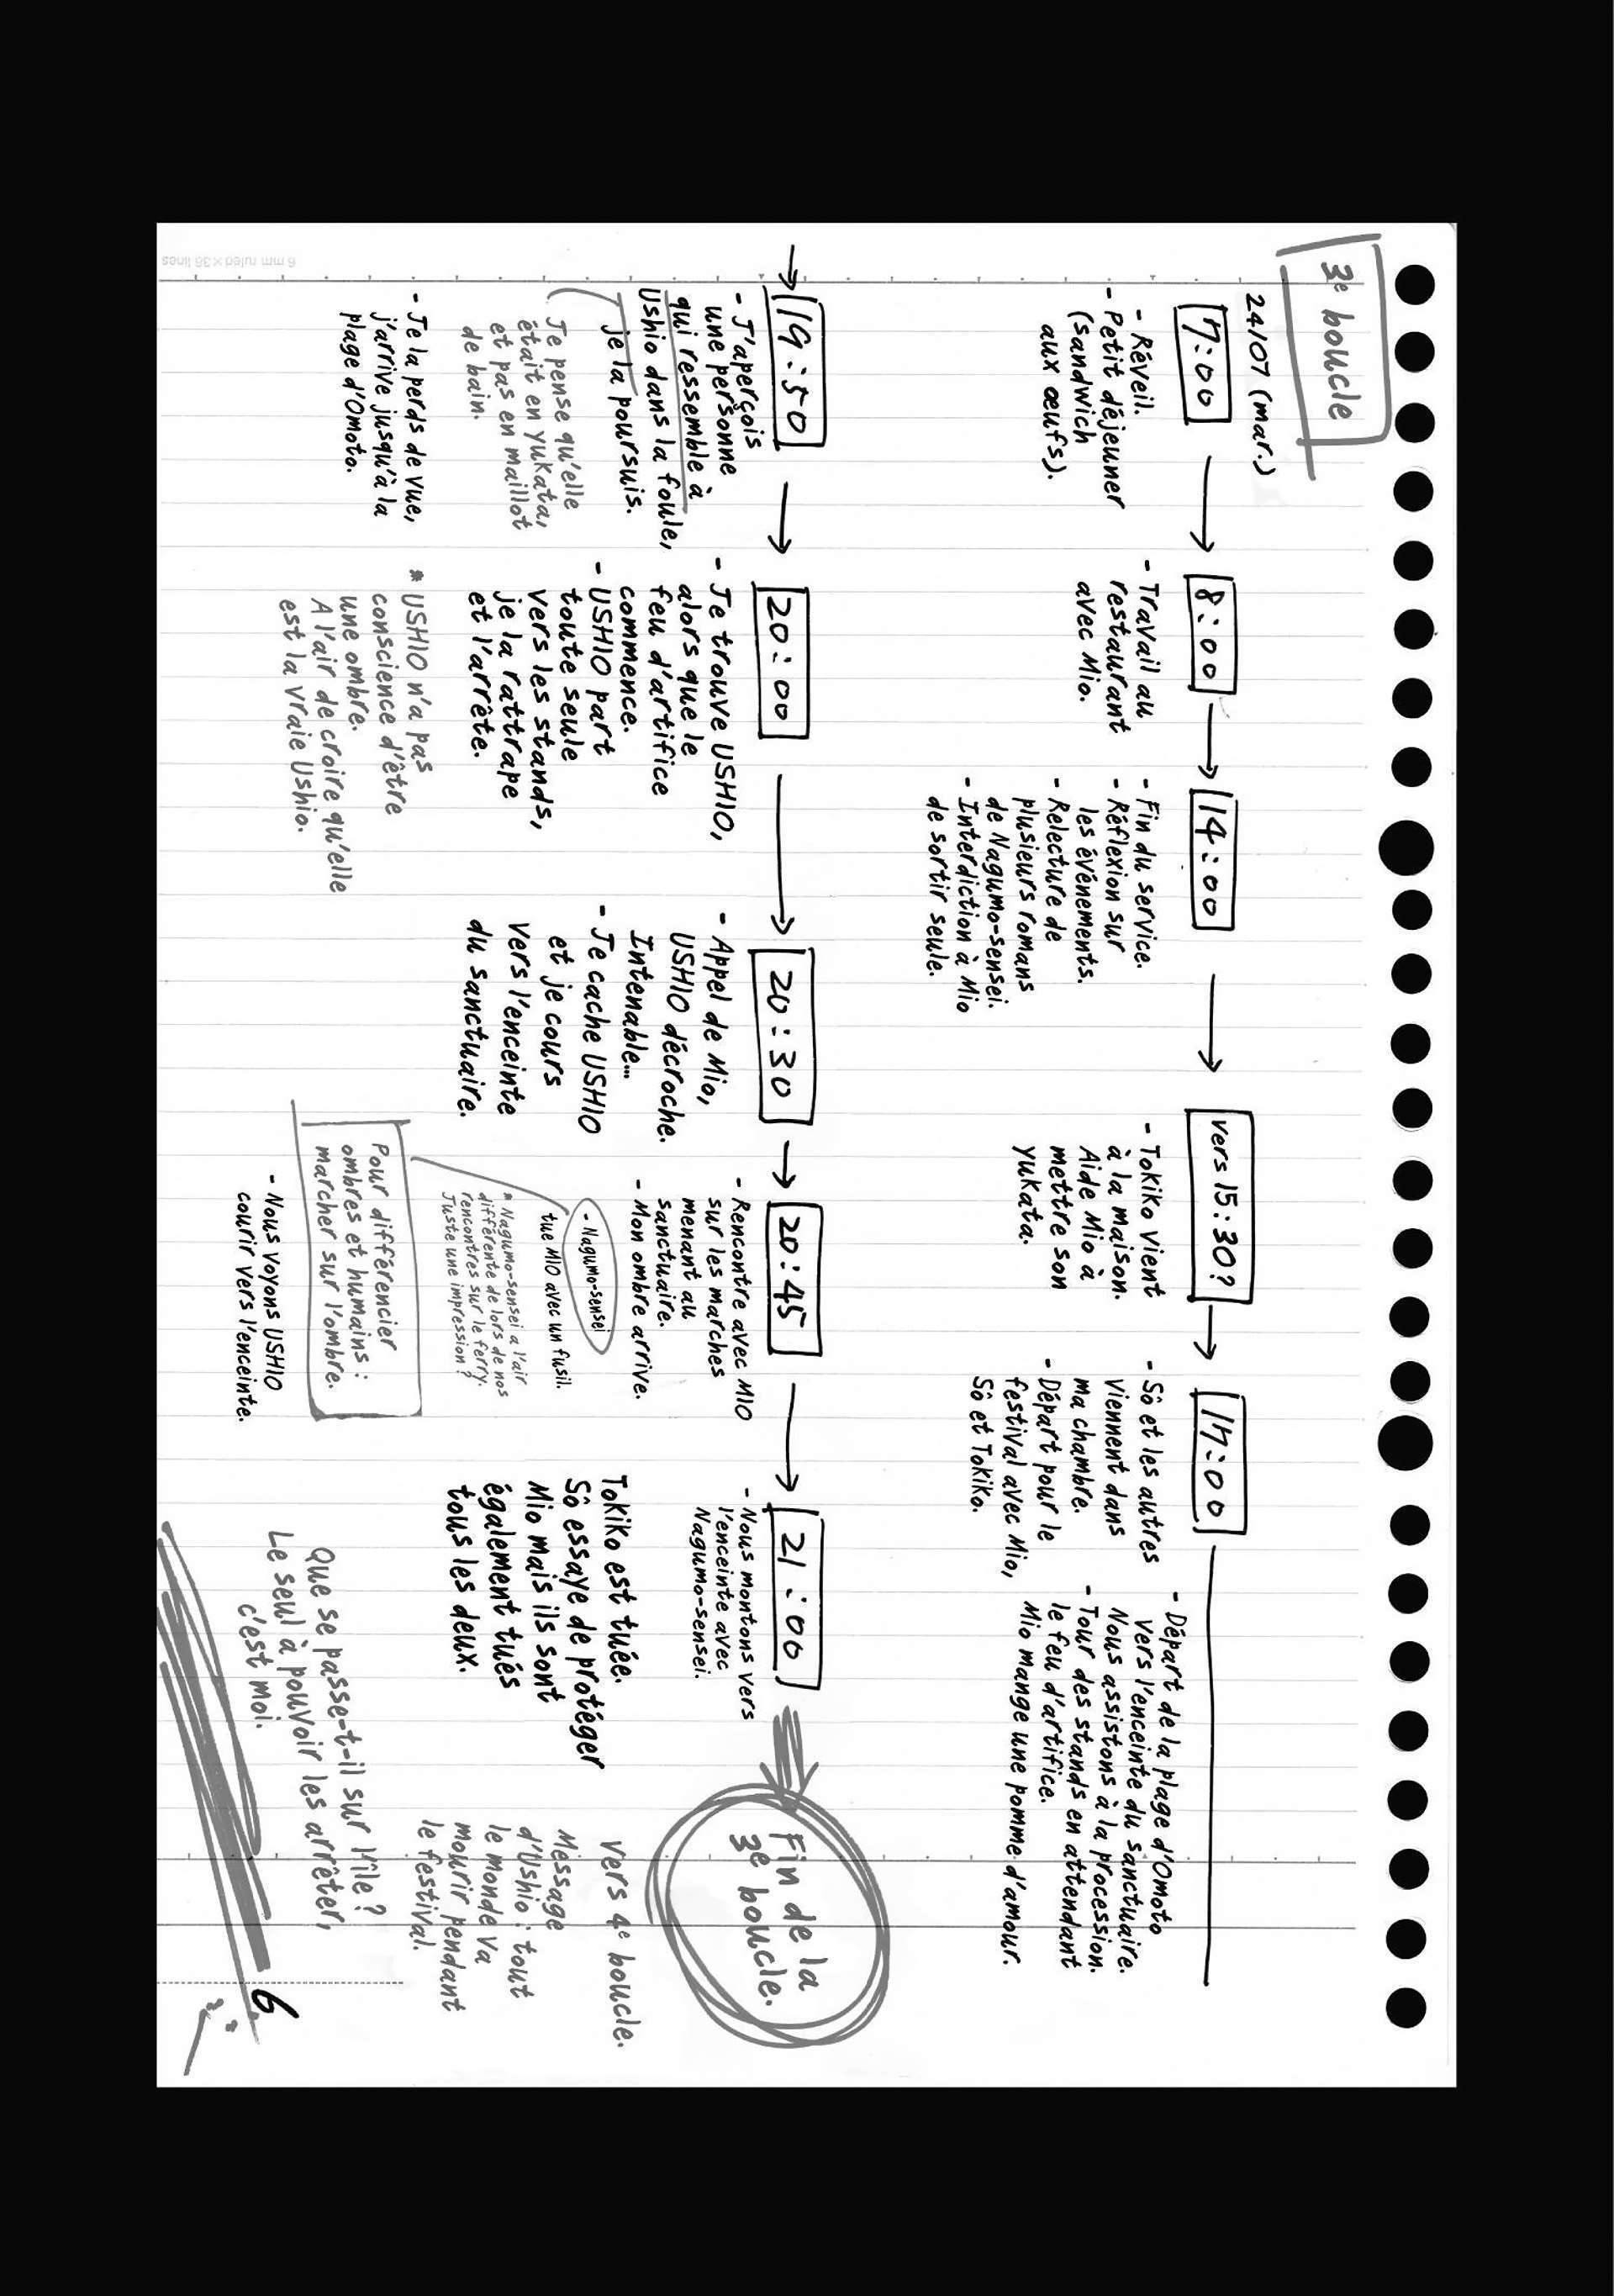 3e boucle
24/07 (mar.)
7:00
- Réveil.
- Petit déjeuner
(sandwich
aux œufs).
8:00
- Travail au
restaurant
avec Mio.
14:00
- Fin du service.
- Réflexion sur
les événements.
- Relecture de
plusieurs romans
de Nagumo-sensei.
- Interdiction à Mio
de sortir seule.
vers 15:30?
- Tokiko vient
à la maison.
Aide Mio à
mettre son
yukata.
17:00
- Sô et les autres
viennent dans
ma chambre.
- Départ pour le
festival avec Mio,
Sô et Tokiko.
- Départ de la plage d'Omoto
vers l'enceinte du sanctuaire.
Nous assistons à la procession.
- Tour des stands en attendant
le feu d'artifice.
Mio mange une pomme d'amour.
19:50
- J'aperçois
une personne
qui ressemble à
Ushio dans la foule,
je la poursuis.
Je pense qu'elle
était en yukata,
et pas en maillot
de bain.
- Je la perds de vue,
j'arrive jusqu'à la
plage d'Omoto.
20:00
- Je trouve USHIO,
alors que le
feu d'artifice
commence.
- USHIO part
toute seule
vers les stands,
je la rattrape
et l'arrête.
* USHIO n'a pas
conscience d'être
une ombre.
A l'air de croire qu'elle
est la vraie Ushio.
20:30
- Appel de Mio,
USHIO décroche.
Intenable...
- Je cache USHIO
et je cours
vers l'enceinte
du sanctuaire.
20:45
- Rencontre avec MIO
sur les marches
menant au
sanctuaire.
- Mon ombre arrive.
- Nagumo-sensei
tue MIO avec un fusil.
* Nagumo-sensei a l'air
différente de lors de nos
rencontres sur le ferry.
Juste une impression ?
Pour différencier
ombres et humains :
marcher sur l'ombre.
- Nous voyons USHIO
courir vers l'enceinte.
21:00
- Nous montons vers
l'enceinte avec
Nagumo-sensei.
Tokiko est tuée.
Sô essaye de protéger
Mio mais ils sont
également tués
tous les deux.
Fin de la
3e boucle.
Vers 4e boucle.
Message
d'Ushio : tout
le monde va
mourir pendant
le festival.
Que se passe-t-il sur l'île ?
Le seul à pouvoir les arrêter,
c'est moi.
6
6 mm ruled × 36 lines